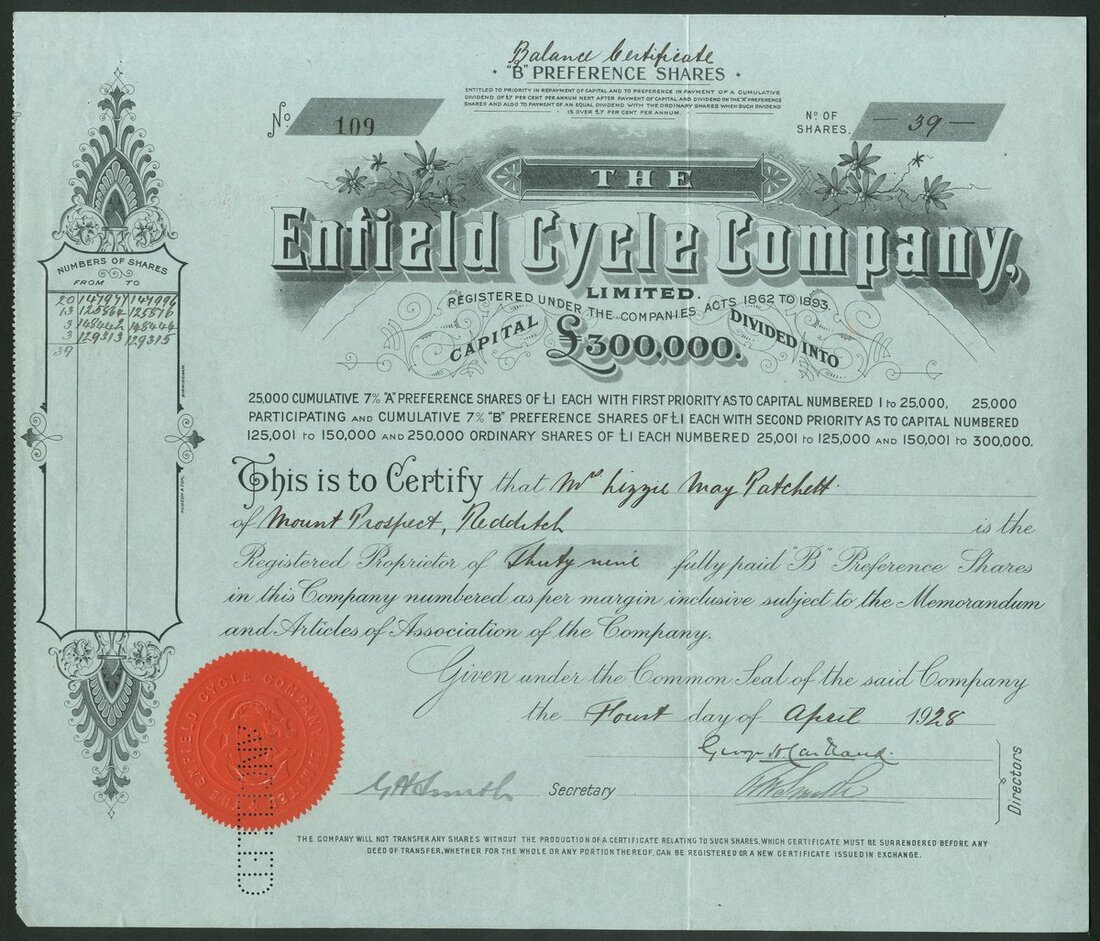 Balance Certificate
"B" PREFERENCE SHARES
ENTITLED TO PRIORITY IN REPAYMENT OF CAPITAL AND TO PREFERENCE IN PAYMENT OF A CUMULATIVE
DIVIDEND OF £7 PER CENT PER ANNUM NEXT AFTER PAYMENT OF CAPITAL AND DIVIDEND ON THE "A" PREFERENCE
SHARES AND ALSO TO PAYMENT OF AN EQUAL DIVIDEND WITH THE ORDINARY SHARES WHEN SUCH DIVIDEND
IS OVER £7 PER CENT PER ANNUM.
No. 109
No. OF SHARES. — 39 —
THE
Enfield Cycle Company,
LIMITED.
REGISTERED UNDER THE COMPANIES ACTS 1862 TO 1893.
CAPITAL £300,000. DIVIDED INTO
25,000 CUMULATIVE 7% "A" PREFERENCE SHARES OF £1 EACH WITH FIRST PRIORITY AS TO CAPITAL NUMBERED 1 to 25,000, 25,000
PARTICIPATING AND CUMULATIVE 7% "B" PREFERENCE SHARES OF £1 EACH WITH SECOND PRIORITY AS TO CAPITAL NUMBERED
125,001 to 150,000 AND 250,000 ORDINARY SHARES OF £1 EACH NUMBERED 25,001 to 125,000 AND 150,001 to 300,000.
NUMBERS OF SHARES
FROM TO
20 147977 147996
13 125864 125876
3 148442 148444
3 129313 129315
39
This is to Certify that Mrs Lizzie May Patchett
of Mount Prospect, Redditch is the
Registered Proprietor of Thirty nine fully paid "B" Preference Shares
in this Company numbered as per margin inclusive subject to the Memorandum
and Articles of Association of the Company.
Given under the Common Seal of the said Company
the First day of April 1928
G H Smith Secretary
Directors
THE ENFIELD CYCLE COMPANY LIMITED
CANCELLED
THE COMPANY WILL NOT TRANSFER ANY SHARES WITHOUT THE PRODUCTION OF A CERTIFICATE RELATING TO SUCH SHARES, WHICH CERTIFICATE MUST BE SURRENDERED BEFORE ANY
DEED OF TRANSFER, WHETHER FOR THE WHOLE OR ANY PORTION THEREOF, CAN BE REGISTERED OR A NEW CERTIFICATE ISSUED IN EXCHANGE.